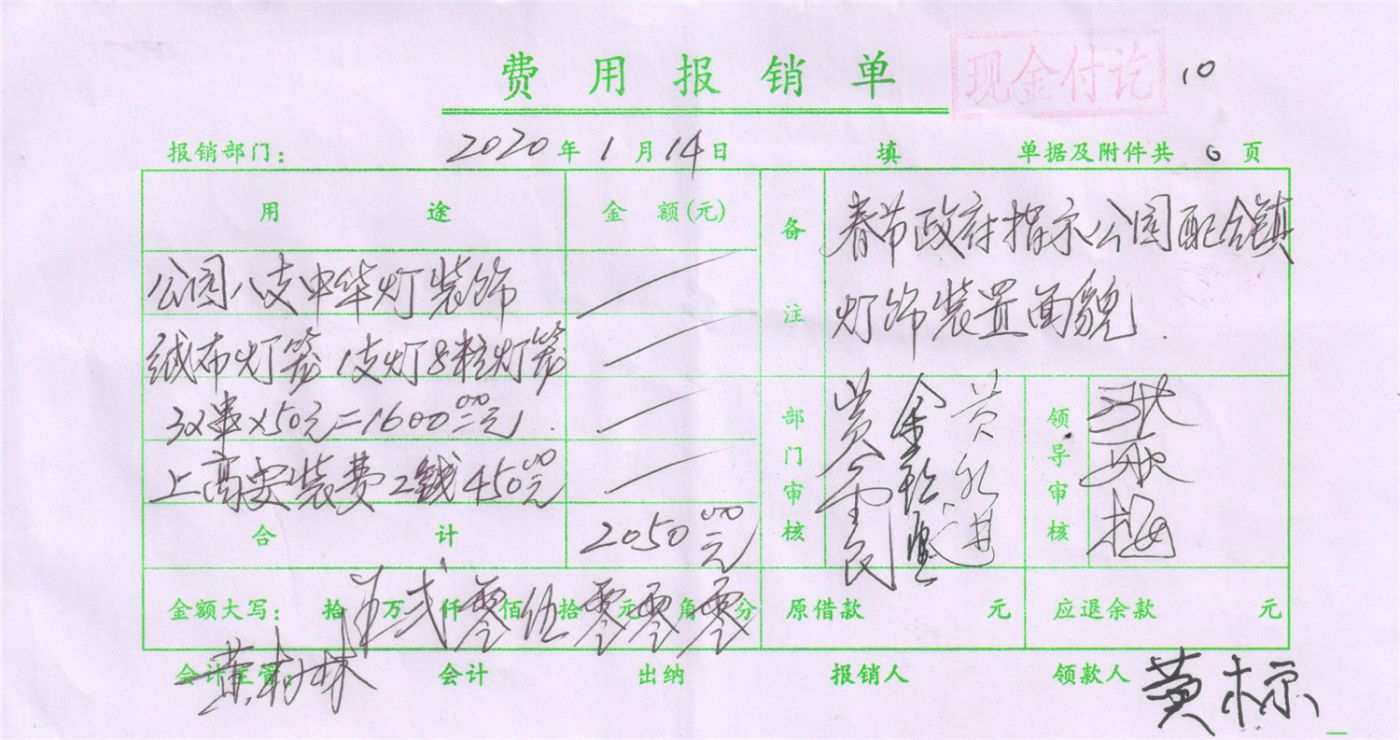 费用报销单
现金付讫
10
报销部门: 2020年1月14日 填 单据及附件共 0 页
用途 金额(元)
公园八支中华灯装饰
绒布灯笼 1支灯8粒灯笼
串×50元=1600.00元
上高安装费 2 450.00元
合计 2050.00元
备注
春节政府指示公园配合镇
灯饰装置面貌.
部门审核
黄金民
领导审核
金额大写: 拾 万 贰 仟 零 佰 伍 拾 零 元 零 角 零 分
原借款 元
应退余款 元
会计主管: 黄树林
会计
出纳
报销人
领款人 黄标